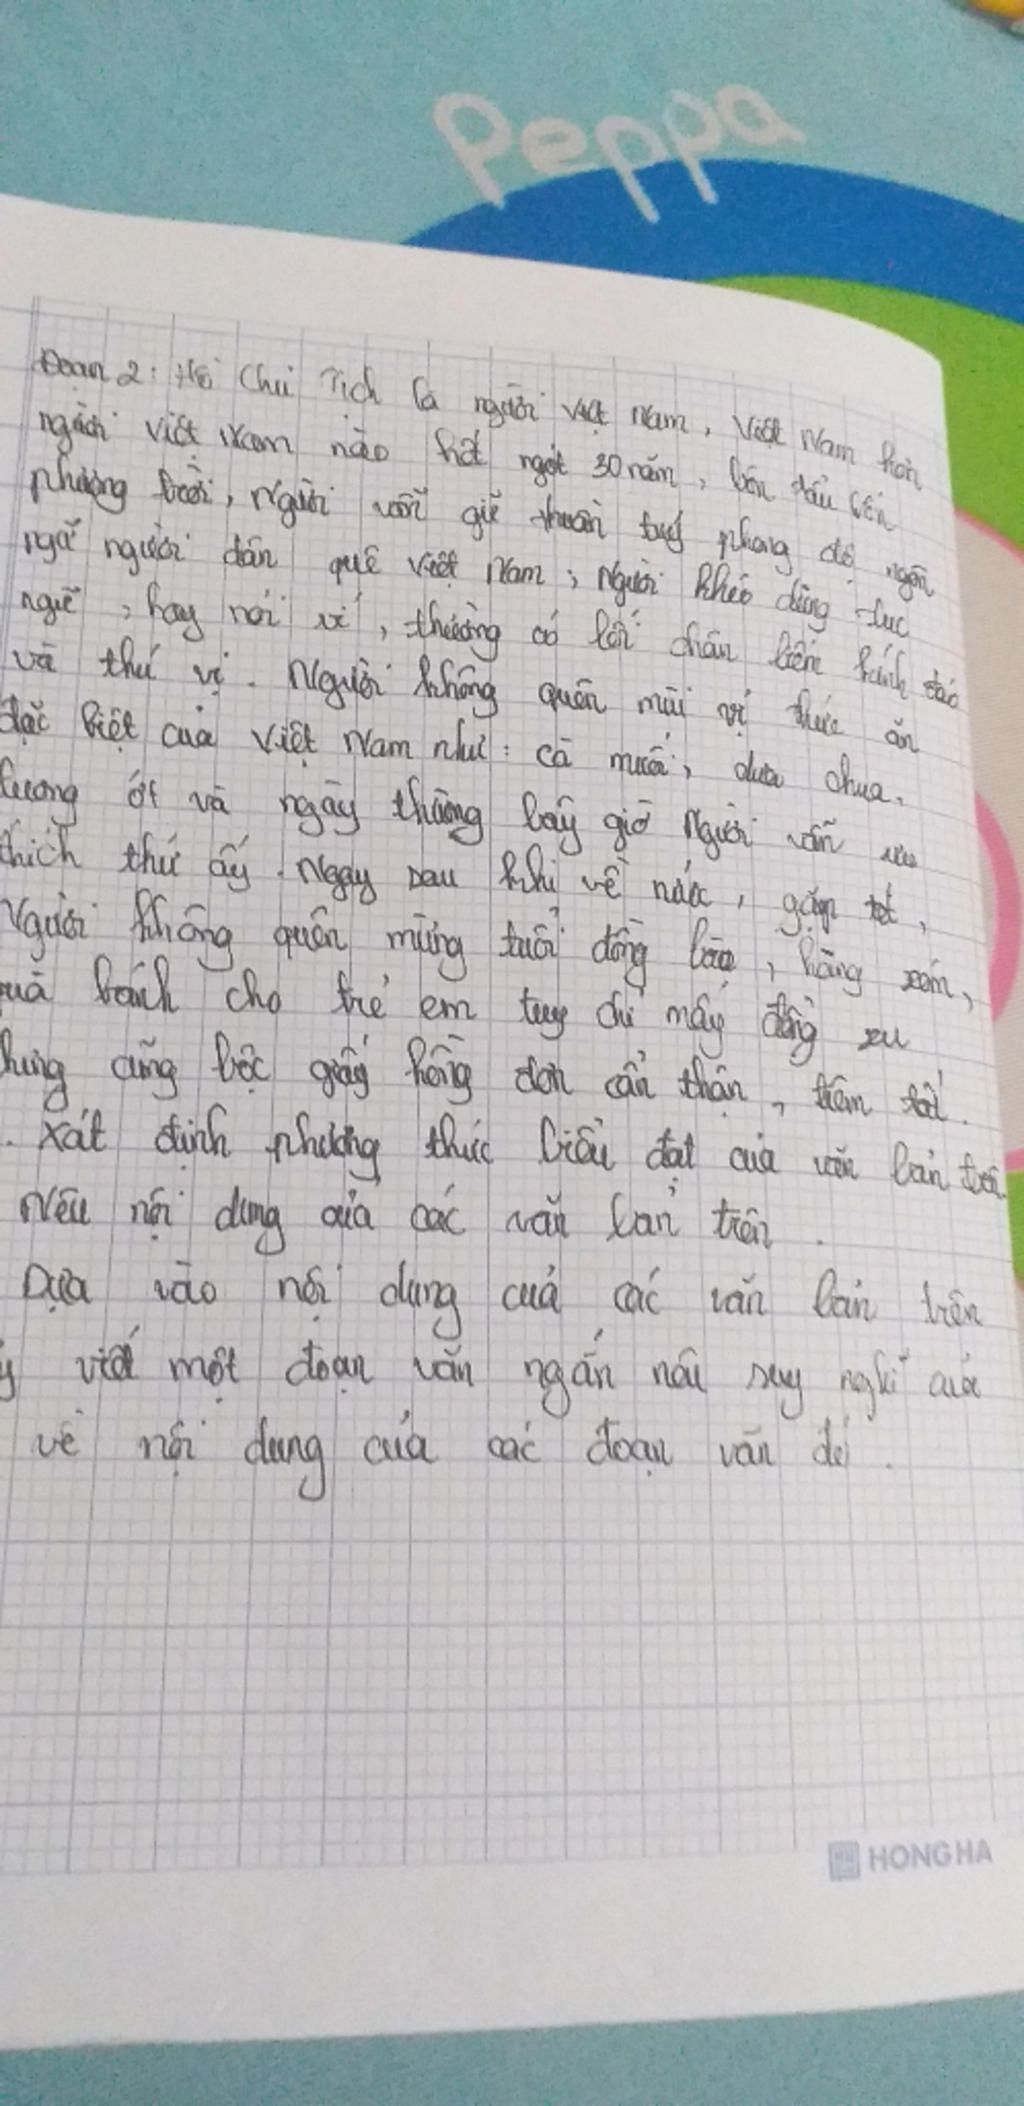 Peppa
Đoạn 2: Hồ Chủ Tịch là người Việt Nam, Việt Nam hơn
người Việt Nam nào hết ngót 30 năm, bôn tẩu bốn
phương trời, Người vẫn giữ thuần tuý phong độ ngôn
ngữ người dân quê Việt Nam, Người khéo dùng tục
ngữ, hay nói ví, thường có lối chân liếm hánh dáo
và thú vị. Người không quên mùi vị thức ăn
đặc biệt của Việt Nam như: cà muối, dưa chua,
tương ớt và ngày thường bây giờ Người vẫn ưa
thích thứ ấy. Ngay sau khi về nước, gặp tết,
Người không quên mừng tuổi đồng bào, hàng xóm,
quà bánh cho trẻ em tuy chỉ mấy đồng xu
hưng cũng bọc giấy hồng đơn cẩn thận, tiêm tất.
. Xát định phương thức biểu đạt của văn bản trên.
Nêu nội dung của các văn bản trên.
Dựa vào nội dung của các văn bản trên
y viết một đoạn văn ngắn nêu suy nghĩ của
về nội dung của các đoạn văn đó.
HONG HA